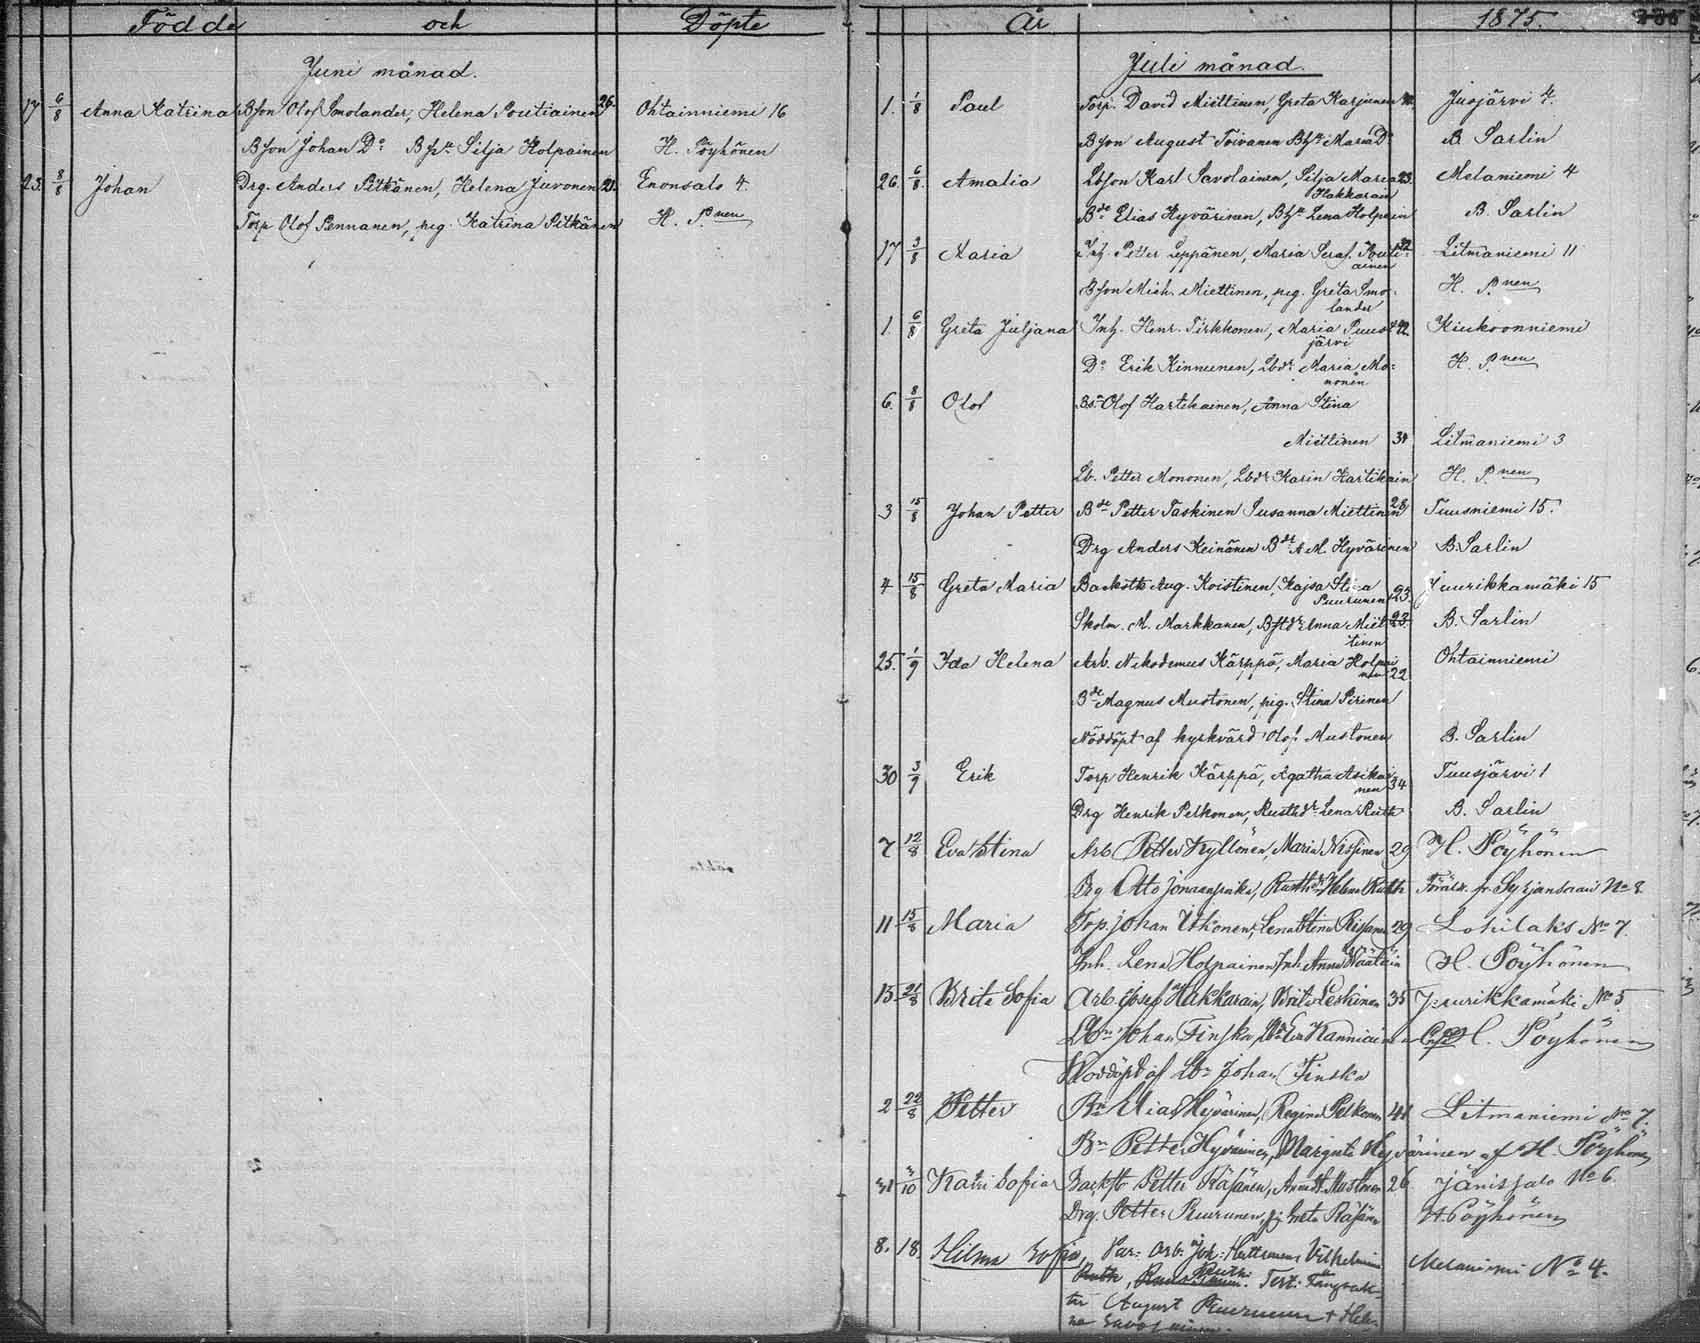 Födde och Döpte
Juni månad.
17 6/8 Anna Katrina Bson Olof Smolander, Helena Poutiainen 26. Ohtainniemi 16
Bson Johan Do Bhn Silja Holpainen H. Pöyhönen
23. 8/8 Johan Drg. Anders Pitkänen, Helena Juvonen 21. Enonsalo 4.
Torp Olof Pennanen, pig. Katrina Pitkänen H. P.nen
År 1875.
Juli månad.
1. 1/8 Paul Torp. David Miettinen, Greta Karjunen Jusjärvi 4.
Bson August Toivanen Bhn Maria Do B. Sarlin
26. 6/8 Amalia Lbson Karl Savolainen, Silja Maria 23. Melaniemi 4
Hakkarain
Bde Elias Hyvärinen, Bhn Lena Holpain B. Sarlin
17 3/8 Maria Inh. Petter Leppänen, Maria Seraf. Pouti- 32 Litmaniemi 11
ainen
Bson Mich. Miettinen, pig. Greta Smo- H. P.nen
lander
1. 6/8 Greta Juljana Inh. Henr. Pirkkonen, Maria Puust 42. Kiukoonniemi
järvi
Do Erik Kinnunen, Lbdr Maria Mo- H. P.nen
nonen
6. 8/8 Olof Olof Hartikainen, Anna Stina
Miettinen 34 Litmaniemi 3
Lb. Petter Mononen, Lbdr Karin Hartikain H. P.nen
3 15/8 Johan Petter Bde Petter Taskinen Susanna Miettinen 28 Tuusniemi 15.
Drg Anders Keinänen Bdr A. M. Hyvärinen B. Sarlin
4 15/8 Greta Maria Backstk Aug. Koistinen, Kajsa Stina Juurikkamäki 15
Puurunen 23.
Skolm. M. Markkanen, Anna Miet 23. B. Sarlin
tinen
25. 1/9 Ida Helena Arb. Nikodemus Kärppä, Maria Holpai Ohtainniemi
nen 22
Bde Magnus Mustonen, pig. Stina Pirinen
Nöddöpt af kyrkvärd Olof Mustonen B. Sarlin
30 3/9 Erik Torp Henrik Kärppä, Agatha Asikai Tuusjärvi 1
nen 34
Drg Henrik Pelkonen, Rusthdr Lena Ruth B. Sarlin
7 12/8 Eva Stina Arb Petter Kyllönen, Maria Nissinen 29 H. Pöyhönen
Drg Otto Helena Ruth No 8
11 15/8 Maria Torp. Johan Itkonen, Lena Stina Rissanen 29 Lohilaks No 7.
Inh. Lena Holpainen Inh Anna H. Pöyhönen
15 21/8 Brita Sofia Arb. Josef Hakkarain, Brita Leskinen 35 Juurikkamäki No 5
Johan Finska H. Pöyhönen
Nöddöpt af Lbn Johan Finska
2 22/8 Petter Bn Elias Hyvärinen, Regina Pelkonen 41 Litmaniemi No 7.
Bn Petter Hyvärinen, Margreta Hyvärinen af H. Pöyhönen
31 3/10 Katri Sofia Backstk Petter Räsänen, Anna St. Mustonen 26 Jänissalo No 6
Drg. Petter Puurunen, pig Greta Räsänen H. Pöyhönen
8. 18 Hilma Sofia, Par: Arb. Joh: Huttunen Vilhelmina Melaniemi No 4.
Ruth Test:
August Puurunen + Hele-
na Savolainen.